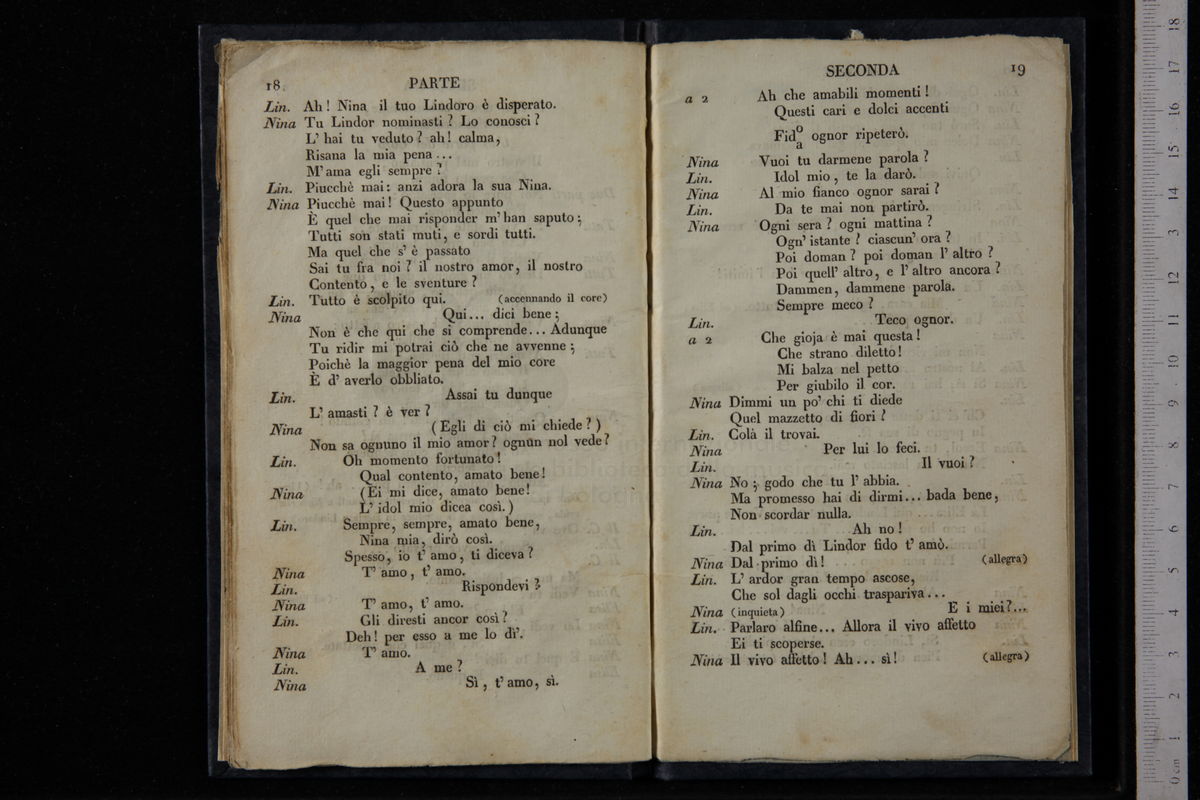 18
PARTE
Lin. Ah! Nina il tuo Lindoro è disperato.
Nina Tu Lindor nominasti? Lo conosci?
L' hai tu veduto? ah! calma,
Risana la mia pena...
M' ama egli sempre?
Lin. Piucchè mai: anzi adora la sua Nina.
Nina Piucchè mai! Questo appunto
È quel che mai risponder m' han saputo;
Tutti son stati muti, e sordi tutti.
Ma quel che s' è passato
Sai tu fra noi? il nostro amor, il nostro
Contento, e le sventure?
Lin. Tutto é scolpito qui. (accennando il core)
Nina Qui... dici bene;
Non è che qui che si comprende... Adunque
Tu ridir mi potrai ciò che ne avvenne;
Poichè la maggior pena del mio core
È d' averlo obbliato.
Lin. Assai tu dunque
L' amasti? è ver?
Nina (Egli di ciò mi chiede?)
Non sa ognuno il mio amor? ognun nol vede?
Lin. Oh momento fortunato!
Qual contento, amato bene!
Nina (Ei mi dice, amato bene!
L' idol mio dicea così.)
Lin. Sempre, sempre, amato bene,
Nina mia, dirò così.
Spesso, io t' amo, ti diceva?
Nina T' amo, t' amo.
Lin. Rispondevi?
Nina T' amo, t' amo.
Lin. Gli diresti ancor così?
Deh! per esso a me lo dì'.
Nina T' amo.
Lin. A me?
Nina Sì, t' amo, sì.
SECONDA
19
a 2 Ah che amabili momenti!
Questi cari e dolci accenti
Fid o/a ognor ripeterò.
Nina Vuoi tu darmene parola?
Lin. Idol mio, te la darò.
Nina Al mio fianco ognor sarai?
Lin. Da te mai non partirò.
Nina Ogni sera? ogni mattina?
Ogn' istante? ciascun' ora?
Poi doman? poi doman l' altro?
Poi quell' altro, e l' altro ancora?
Dammen, dammene parola.
Sempre meco?
Lin. Teco ognor.
a 2 Che gioja è mai questa!
Che strano diletto!
Mi balza nel petto
Per giubilo il cor.
Nina Dimmi un po' chi ti diede
Quel mazzetto di fiori?
Lin. Colà il trovai.
Nina Per lui lo feci.
Lin. Il vuoi?
Nina No; godo che tu l' abbia.
Ma promesso hai di dirmi... bada bene,
Non scordar nulla.
Lin. Ah no!
Dal primo dì Lindor fido t' amò.
Nina Dal primo dì! (allegra)
Lin. L' ardor gran tempo ascose,
Che sol dagli occhi traspariva...
Nina (inquieta) E i miei?...
Lin. Parlaro alfine... Allora il vivo affetto
Ei ti scoperse.
Nina Il vivo affetto! Ah... sì! (allegra)